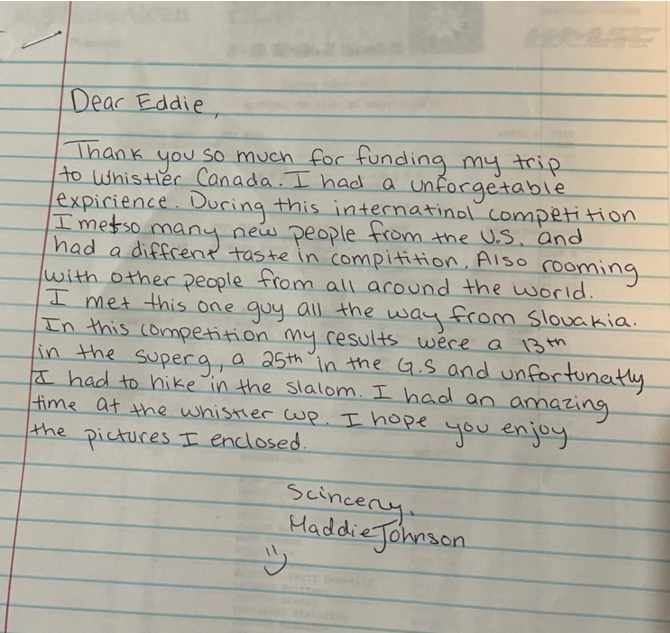 Dear Eddie,
Thank you so much for funding my trip
to Whistler Canada. I had a unforgetable
expirience. During this internatinol competition
I met so many new people from the U.S. and
had a diffrent taste in compitition. Also rooming
with other people from all around the world.
I met this one guy all the way from Slovakia.
In this competition my results were a 13th
in the superg, a 25th in the G.S and unfortunatly
I had to hike in the slalom. I had an amazing
time at the whistler cup. I hope you enjoy
the pictures I enclosed.
Scincerly,
Maddie Johnson